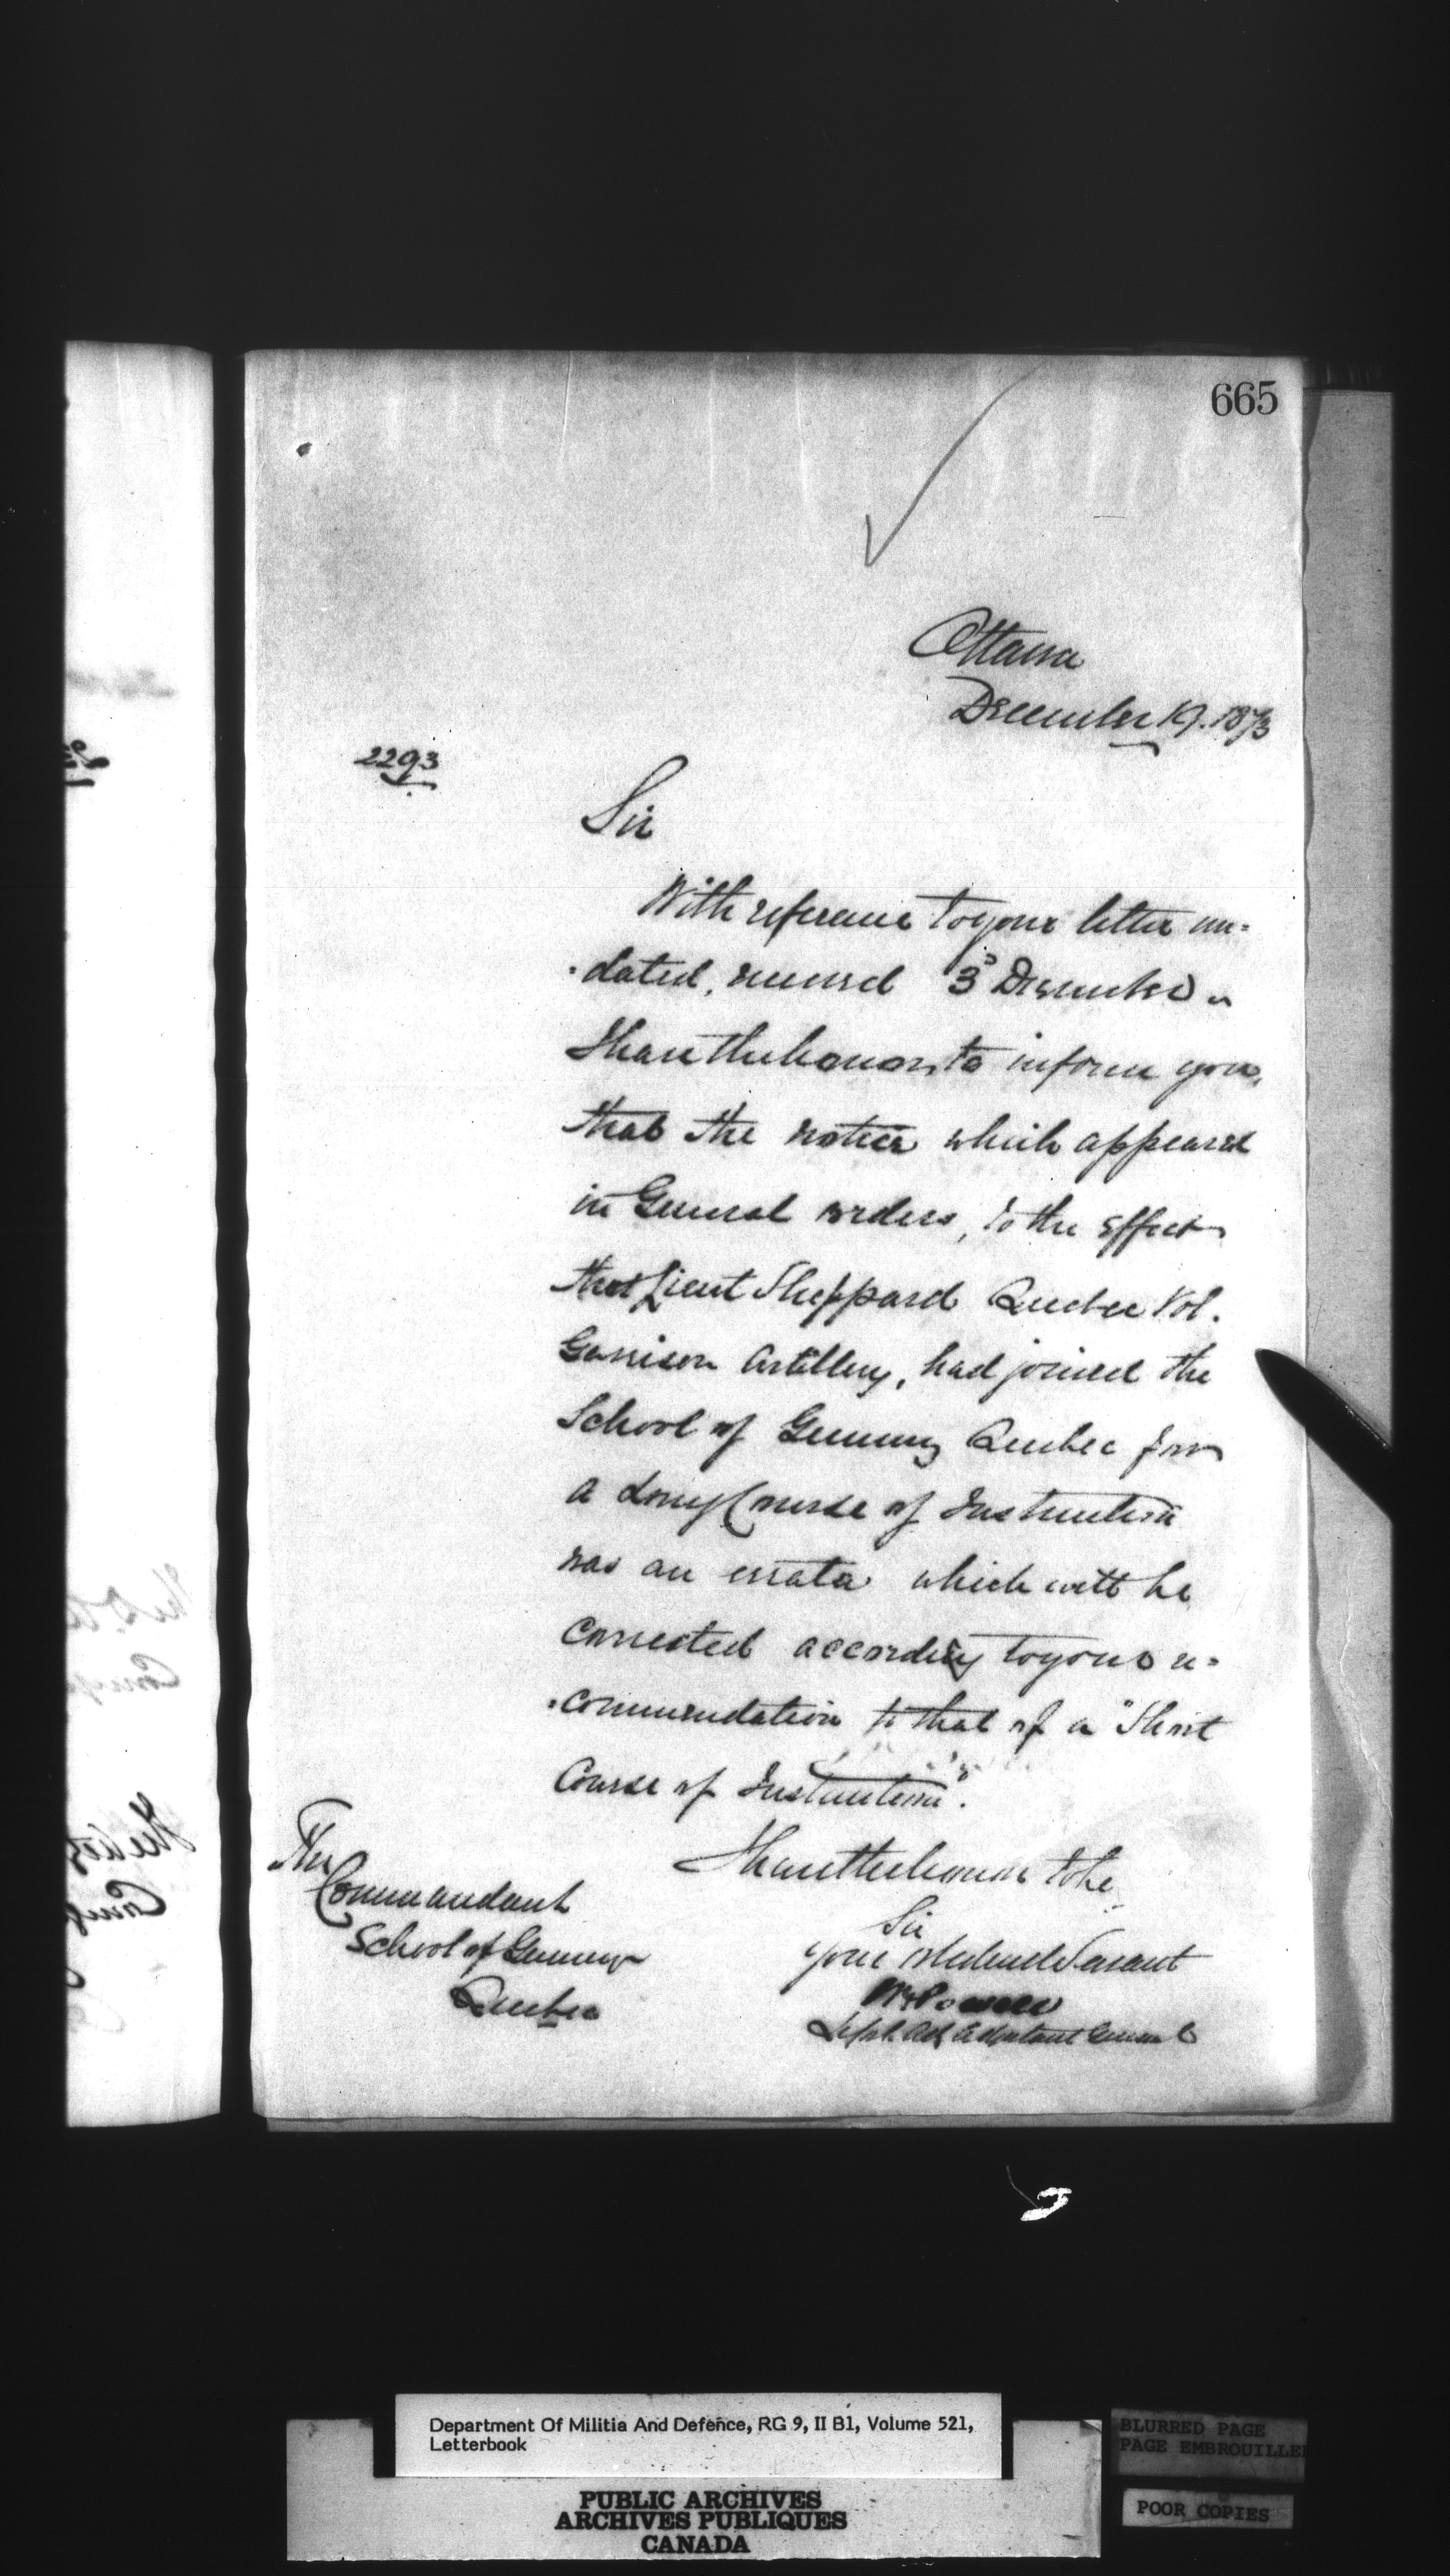 665
Ottawa
December 19. 1873
2293
Sir
With reference to your letter un=
-dated, received 3d December
I have the honor to inform you,
that the notice which appeared
in General orders, to the effect
that Lieut Sheppard Quebec Vol.
Garrison Artillery, had joined the
School of Gunnery Quebec for
a Long Course of Instruction
was an errata which will be
corrected according to your re=
=commendation to that of a "Short
Course of Instruction".
I have the honor to be
Sir
Your obedient Servant
W Powell
Dept. Adj Adjutant General
The
Commandant
School of Gunnery
Quebec
Department Of Militia And Defence, RG 9, II B1, Volume 521,
Letterbook
PUBLIC ARCHIVES
ARCHIVES PUBLIQUES
CANADA
BLURRED PAGE
PAGE EMBROUILLE
POOR COPIES